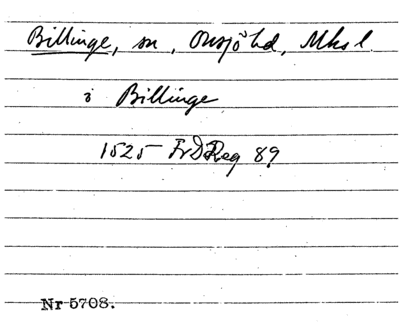 Billinge, sn, Onsjö hd, Mhs l.
i Billinge
1525 FrDReg 89
Nr 5708.